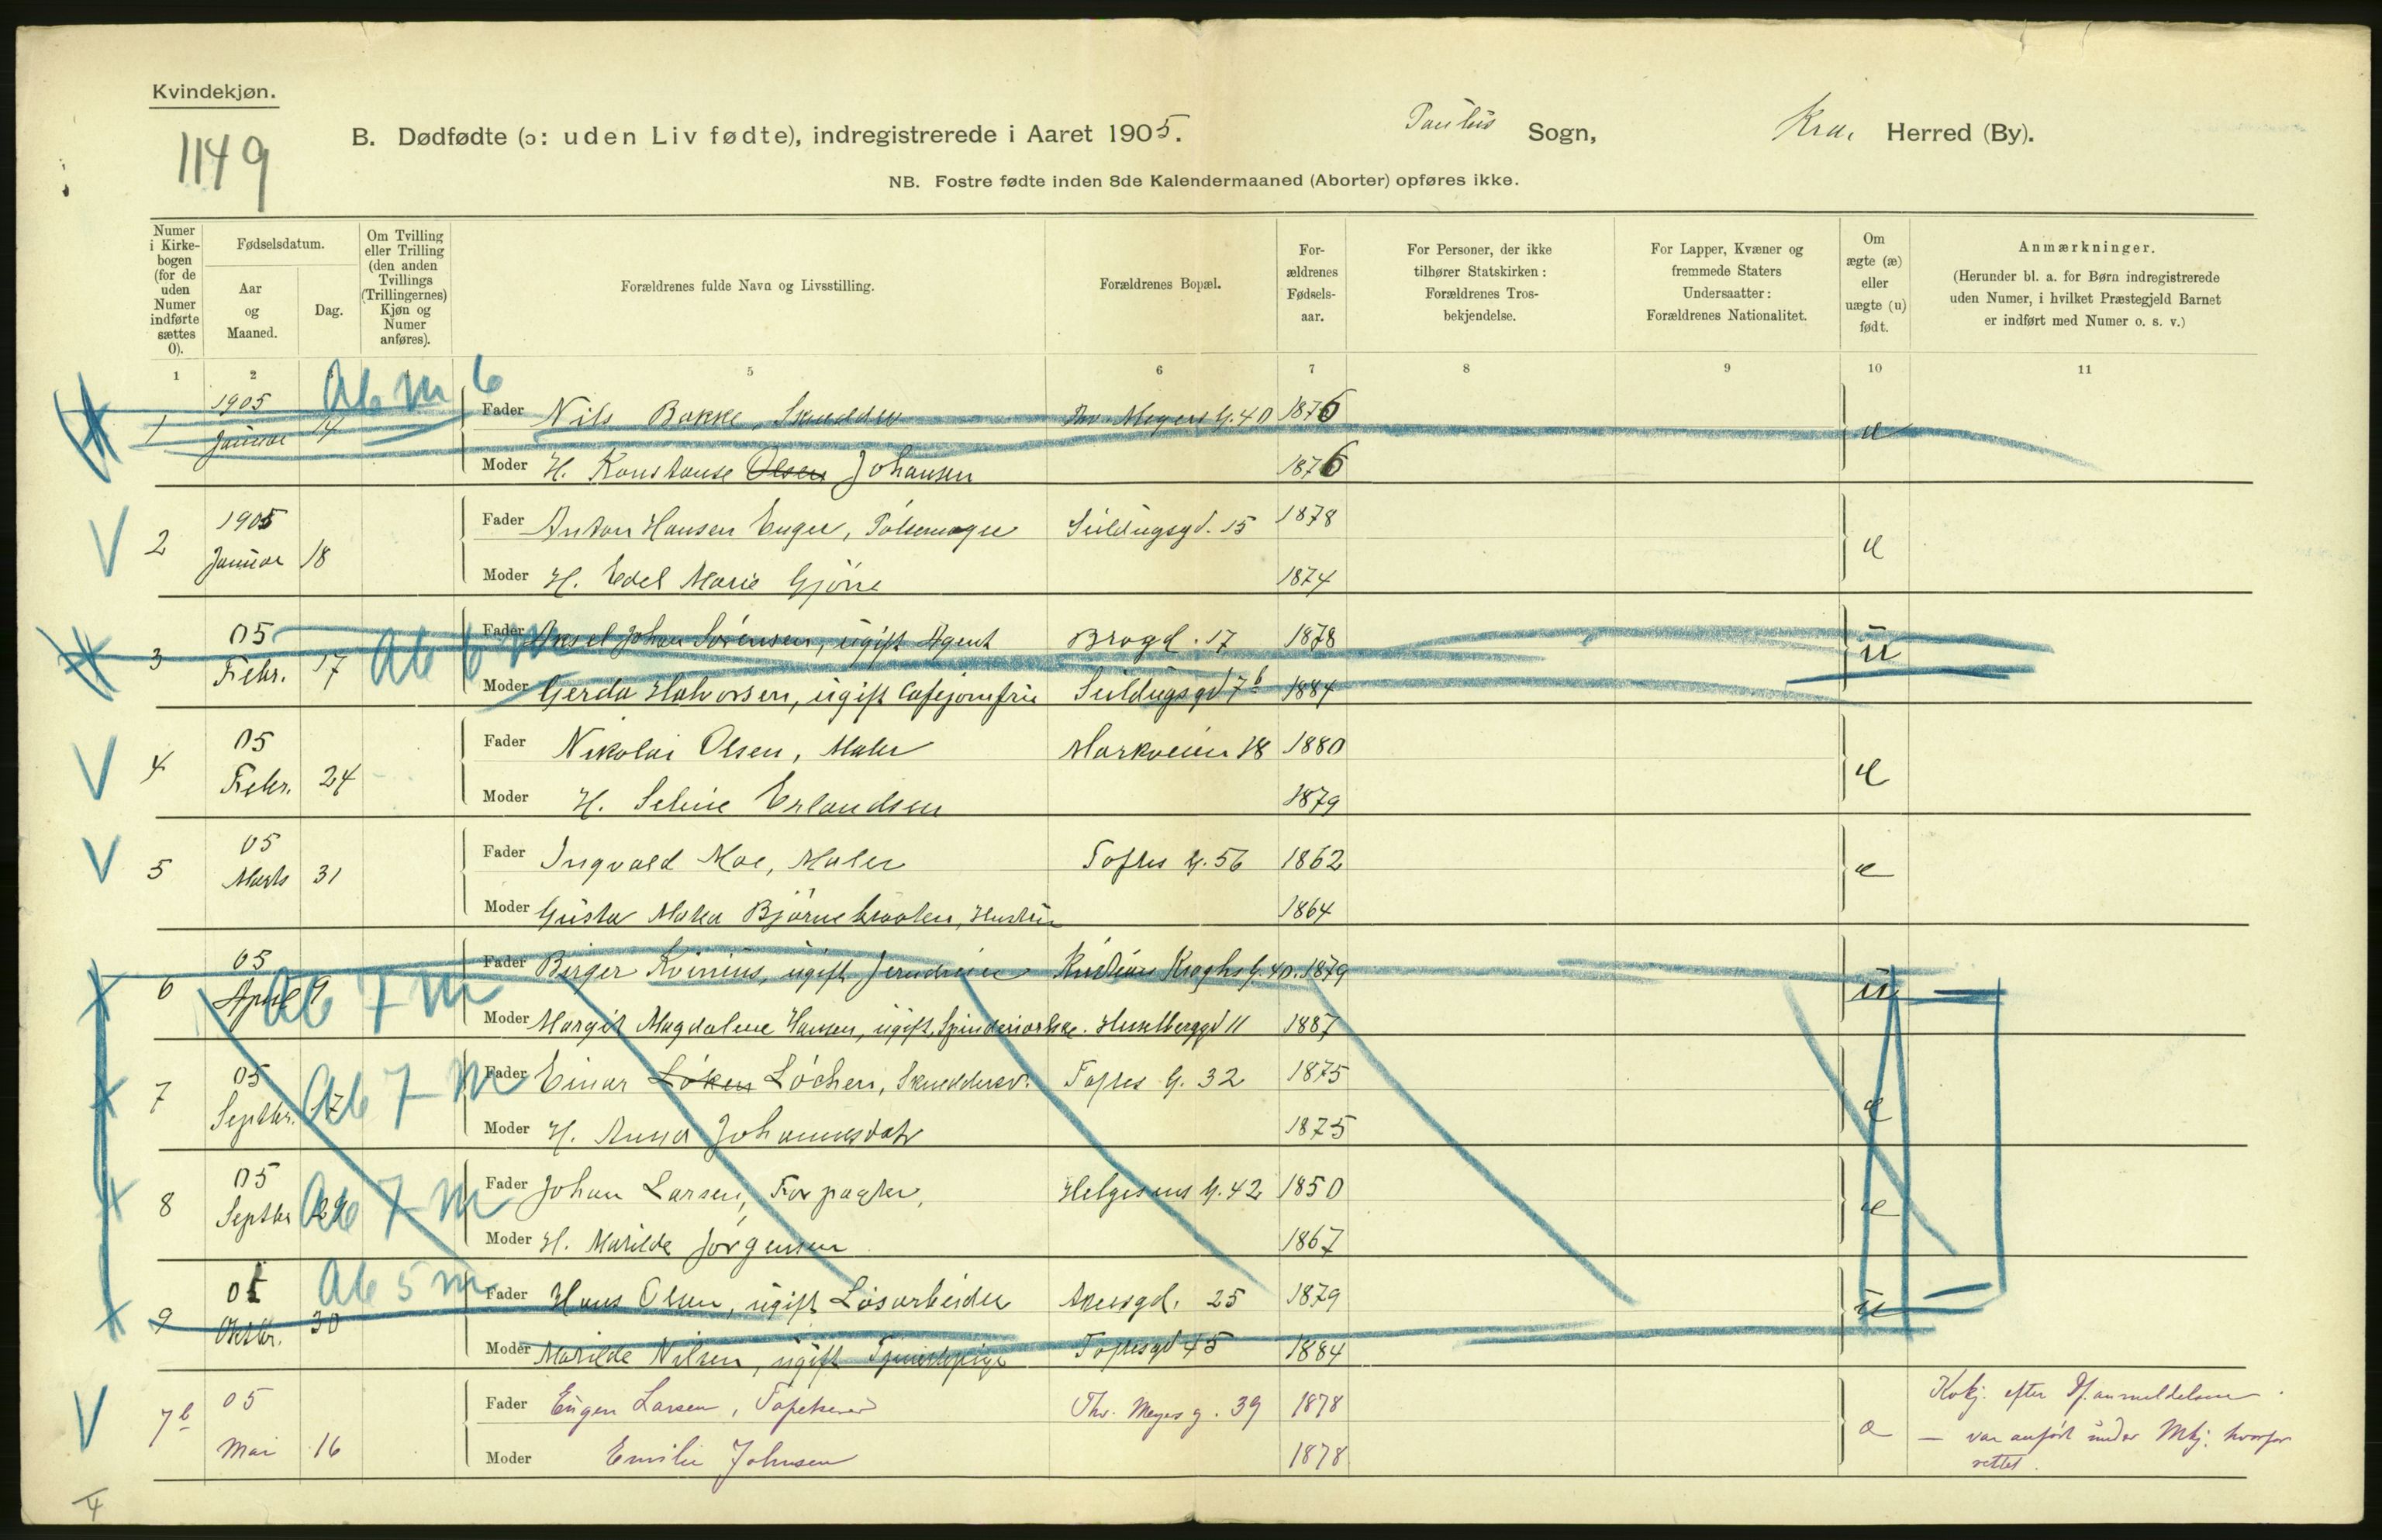 Kvindekjøn.
1149
B. Dødfødte (ɔ: uden Liv fødte), indregistrerede i Aaret 1905. Paulus Sogn, Kra. Herred (By).
NB. Fostre fødte inden 8de Kalendermaaned (Aborter) opføres ikke.
Numer i Kirkebogen (for de uden Numer indførte sættes 0).
Fødselsdatum.
Aar og Maaned.
Dag.
Om Tvilling eller Trilling (den anden Tvillings (Trillingernes) Kjøn og Numer anføres).
Forældrenes fulde Navn og Livsstilling.
Forældrenes Bopæl.
Forældrenes Fødselsaar.
For Personer, der ikke tilhører Statskirken: Forældrenes Trosbekjendelse.
For Lapper, Kvæner og fremmede Staters Undersaatter: Forældrenes Nationalitet.
Om ægte (æ) eller uægte (u) født.
Anmærkninger.
(Herunder bl. a. for Børn indregistrerede uden Numer, i hvilket Præstegjeld Barnet er indført med Numer o. s. v.)
1 2 5 6 7 8 9 10 11
Ab m 6
1 1905 Januar 14 Fader Nils Bakke, Skrædder Thv. Meyers G. 40 1876 æ
Moder H. Konstanse Olsen Johansen 1876
2 1905 Januar 18 Fader Anton Hansen Enger, Pølsemager Seildugsgd. 15 1878 æ
Moder H. Edel Marie Gjöne 1874
3 05 Febr. 17 Ab 6 m Fader Aksel Johan Sörensen, ugift Agent Brogd. 17 1878 u
Moder Gerda Halvorsen, ugift Cafejomfru Seildugsgd 7b 1884
4 05 Febr. 24 Fader Nikolai Olsen, Maler Markveien 18 1880 æ
Moder H. Seline Erlandsen 1879
5 05 Marts 31 Fader Ingvald Moe, Maler Toftes G. 56 1862 æ
Moder Gusta Maka Björnebraaten, Hustru 1864
6 05 April 9 Ab 7 m Fader Birger Kvinius, ugift Jerndreier Kristian Kroghs G. 40. 1879 u
Moder Margit Magdalene Hansen, ugift, Spinderiarbke. Hesselberggd 11 1887
7 05 Septbr. 17 Ab 7 m Fader Einar Löken Löchen, Skræddersv. Toftes G. 32 1875 æ
Moder H. Anna Johannesdatr 1875
8 05 Septbr 29 Ab 7 m Fader Johan Larsen, Forpagter, Helgesens G. 42 1850 æ
Moder H. Matilde Jörgensen 1867
9 05 Oktbr. 30 Ab 5 m Fader Hans Olsen, ugift Lösarbeider Akersgd. 25 1879 u
Moder Matilde Nilsen, ugift Toftesgd 45 1884
7b 05 Mai 16 Fader Eugen Larsen, Tapetserer Thv. Meyers g. 39 1878 æ
Moder Emilie Johnsen 1878
Kvkj. efter Df. anmeldelsen.
— var anført under Mkj. hvorfor
rettet.